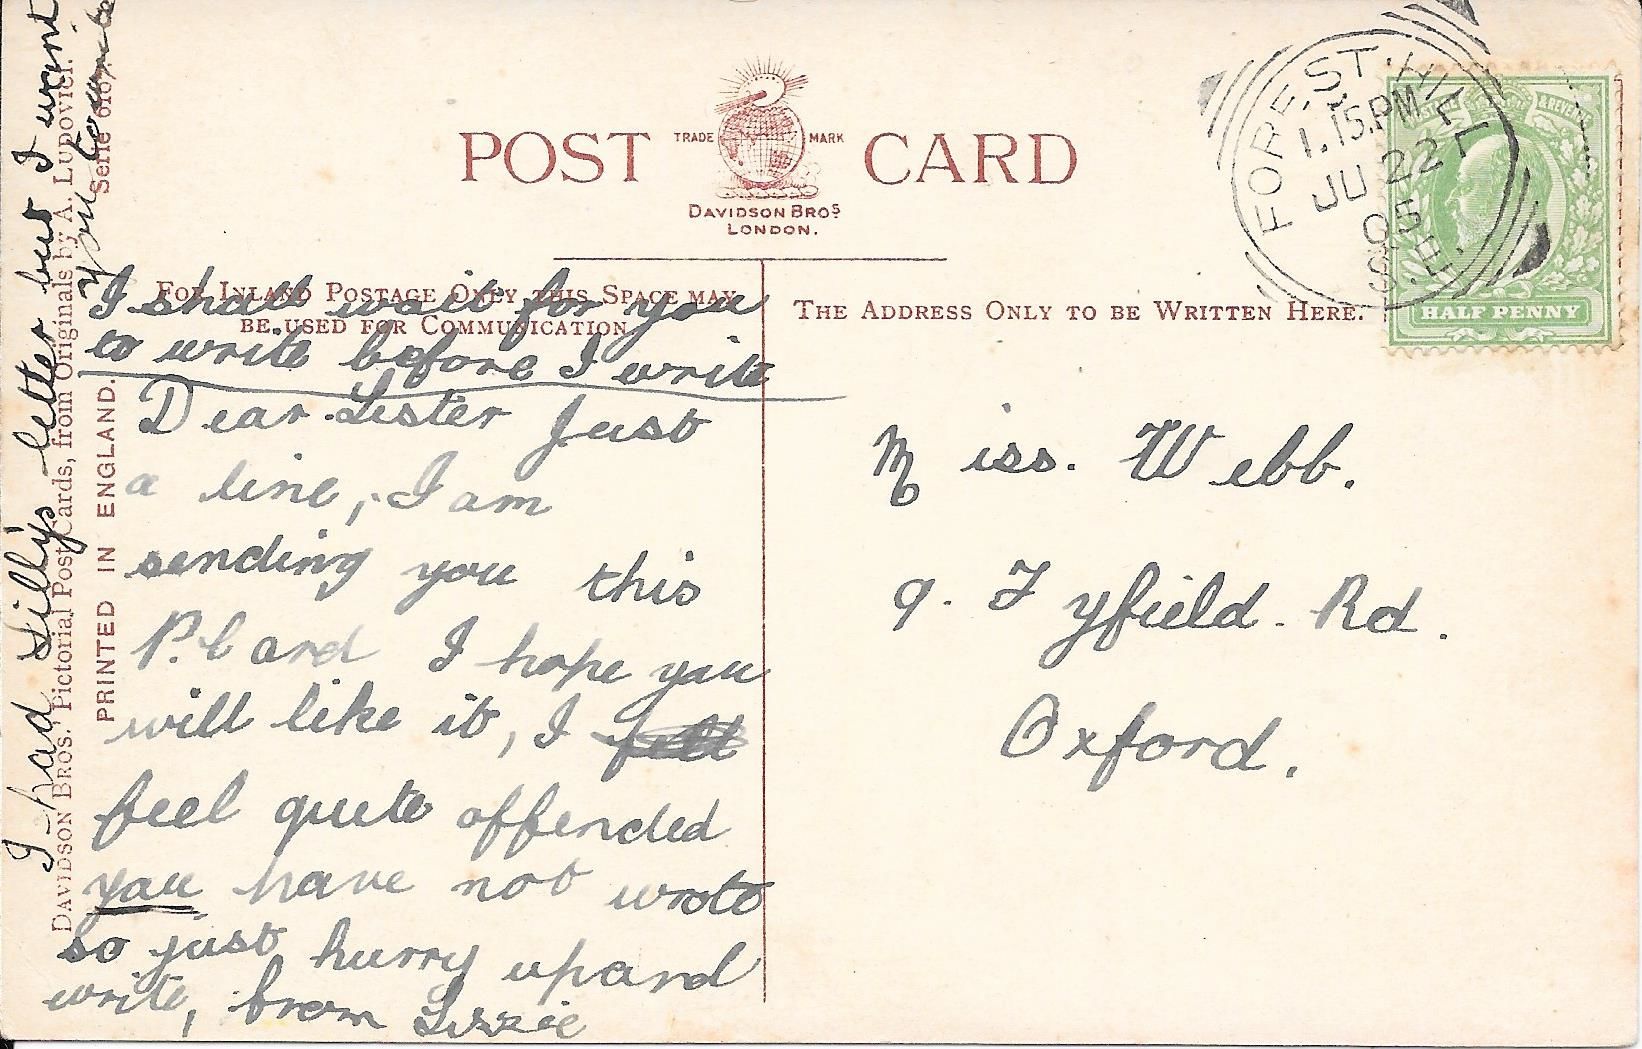 POST CARD
TRADE MARK
DAVIDSON BROS
LONDON.
FOREST HILL
1.15.PM
JU 22
05
S.E.
& REVENUE
HALF PENNY
FOR INLAND POSTAGE ONLY THIS SPACE MAY
BE USED FOR COMMUNICATION.
THE ADDRESS ONLY TO BE WRITTEN HERE.
I shall wait for you
to write before I write
Dear Sister Just
a line, I am
sending you this
P. Card I hope you
will like it, I
feel quite offended
you have not wrote
so just hurry up and
write, from Lizzie
Miss. Webb.
9. Fyfield Rd.
Oxford.
I had Lilly's letter but I want
you to write
DAVIDSON BROS.' Pictorial Post Cards, from Originals by A. LUDOVICI.
Serie 6167
PRINTED IN ENGLAND.